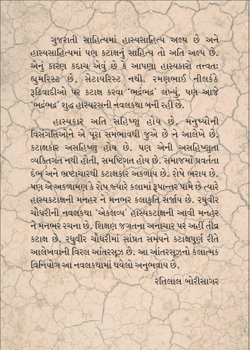 ગુજરાતી સાહિત્યમાં હાસ્યસાહિત્ય અલ્પ છે અને
હાસ્યસાહિત્યમાં પણ કટાક્ષનું સાહિત્ય તો અતિ અલ્પ છે.
એનું કારણ કદાચ એવું છે કે આપણા હાસ્યકારો તત્ત્વતઃ
હ્યુમરિસ્ટ છે, સેટાયરિસ્ટ નથી. રમણભાઈ નીલકંઠે
રૂઢિવાદીઓ પર કટાક્ષ કરવા 'ભદ્રંભદ્ર' લખ્યું, પણ આજે
'ભદ્રંભદ્ર' શુદ્ધ હાસ્યરસની નવલકથા બની રહી છે.
હાસ્યકાર અતિ સહિષ્ણુ હોય છે. મનુષ્યોની
વિસંગતિઓને એ પૂરા સમભાવથી જુએ છે ને આલેખે છે.
કટાક્ષકાર અસહિષ્ણુ હોય છે. પણ એની અસહિષ્ણુતા
વ્યક્તિગત નથી હોતી, સમષ્ટિગત હોય છે. સમાજમાં પ્રવર્તતા
દંભ અને ભ્રષ્ટાચારથી કટાક્ષકાર અકળાય છે. રોષે ભરાય છે.
પણ એ અકળામણ કે રોષ જ્યારે કલામાં રૂપાન્તર પામે છે ત્યારે
હાસ્યકટાક્ષની મનહર ને મનભર કલાકૃતિ સર્જાય છે. રઘુવીર
ચૌધરીની નવલકથા 'એકલવ્ય' હાસ્યકટાક્ષની આવી મનહર
ને મનભર રચના છે. શિક્ષણ જગતના અનાચાર પર અહીં તીવ્ર
કટાક્ષ છે. રઘુવીર ચૌધરીમાં સાંપ્રત સમયને કટાક્ષપૂર્ણ રીતે
આલેખવાની વિરલ આંતરસૂઝ છે. આ આંતરસૂઝનો કલાત્મક
વિનિયોગ આ નવલકથામાં થયેલો અનુભવાય છે.
રતિલાલ બોરીસાગર